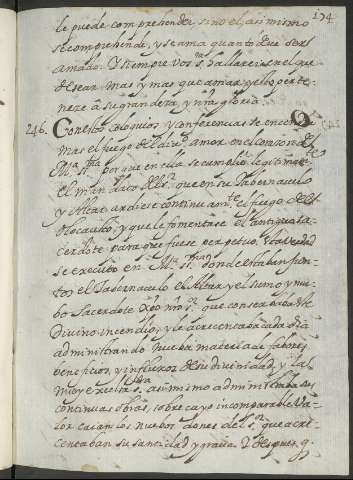 174
le puede comprehender sino el, asi mismo
se comprehende, y se ama quanto deue ser
amado. Y siempre vos. hallareis en el que
desear mas, y mas que amar, y ello perte
neze a su grandeza, y nra gloria.
246. Con estos coloquios y conferencias se encendia
mas el fuego del diuo amor en el corazon de
Ma. ssma. porque en ella se cumplio legitimamte.
el mandato del Sr. que en su Tabernaculo
y Altar ardiese continuamte. el fuego del
Holocausto, y que le fomentase el antiguo sa
cerdote para que fuese perpetuo. esta verdad
se executo en Ma. ssma. donde estaban jun
tos el Tabernaculo el Altar y el sumo y nue
bo sacerdote Xpo nro Sr. que conserbaba este
Diuino incendio, y le acrecentaba cada dia
administrando nueba materia de fabores,
beneficios, y influxos de su diuinidad, y la
muy excelsa sra. asimismo administraba sus
continuas obras, sobre cuyo incomparable Va
lor caian los nuebos dones del Sr. que acre
centaban su sanctidad y gracia. Y despues q.